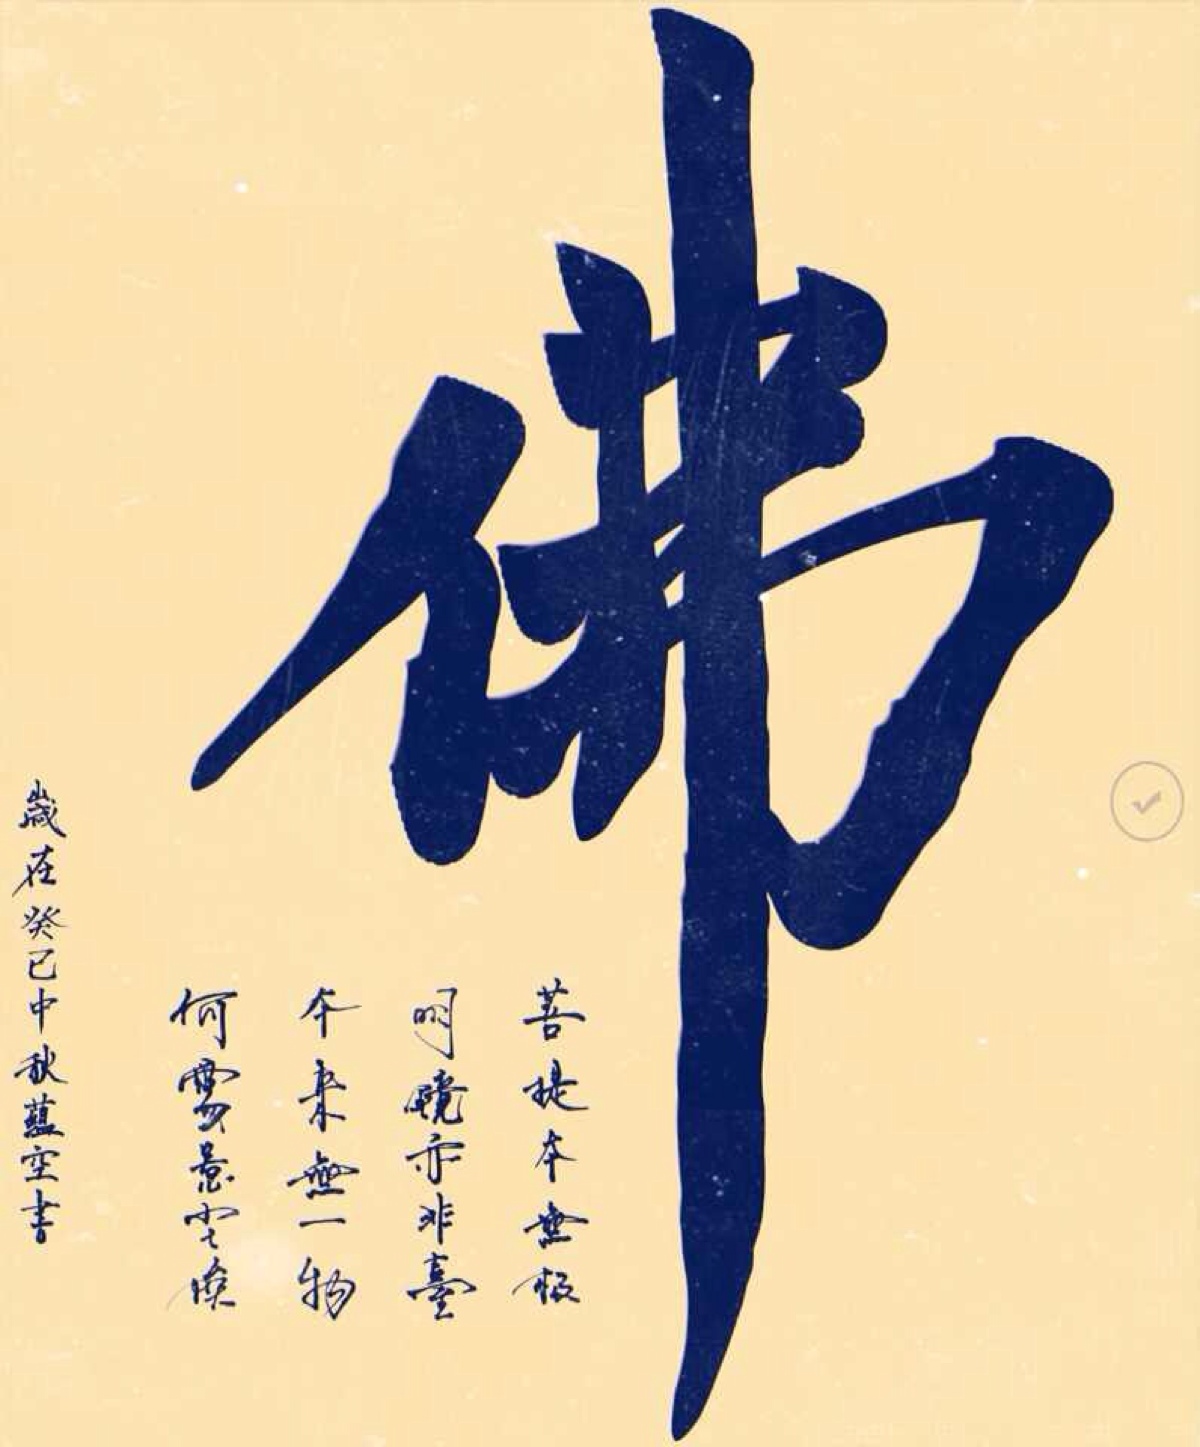 佛
菩提本無根
明鏡亦非臺
本来無一物
何
歲在癸巳中秋蘊空書